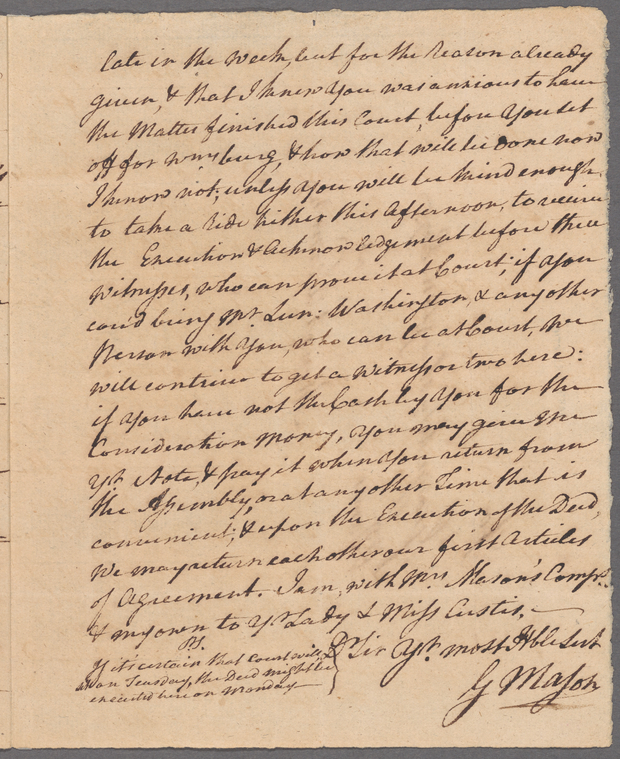 late in the Week, but for the Reason already
given, & that I knew You was anxious to have
the Matter finished this Court, before You set
off for Wmsburg, & how that will be done now
I know not, unless You will be kind enough
to take a Ride hither this Afternoon, to receive
the Execution & Acknowledgement before three
Witnesses, who can prove it at Court; if You
cou'd bring Mr. Lun: Washington, & any other
Person with You, who can be at Court, We
will contrive to get a Witness or two here:
if You have not the Cash by You for the
Consideration Money, You may give me
Yr. Note, & pay it when You return from
the Assembly, or at any other Time that is
convenient; & upon the Execution of the Deed,
We may return each other our first Articles
of Agreement. I am, with Mrs. Mason's Comps.
& my own to Yr. Lady & Miss Custis,
Dr. Sir Yr. most Hble Servt
G Mason
PS.
If its certain that Court will
on Tuesday, the Deed might be
executed here on Monday